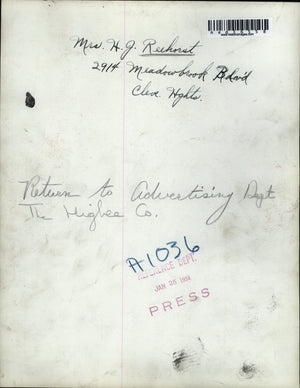 Mrs. H. J. Reehorst
2914 Meadowbrook Blvd
Cleve. Hghts.
Return to Advertising Dept
The Higbee Co.
A1036
REFERENCE DEPT.
JAN 25
PRESS